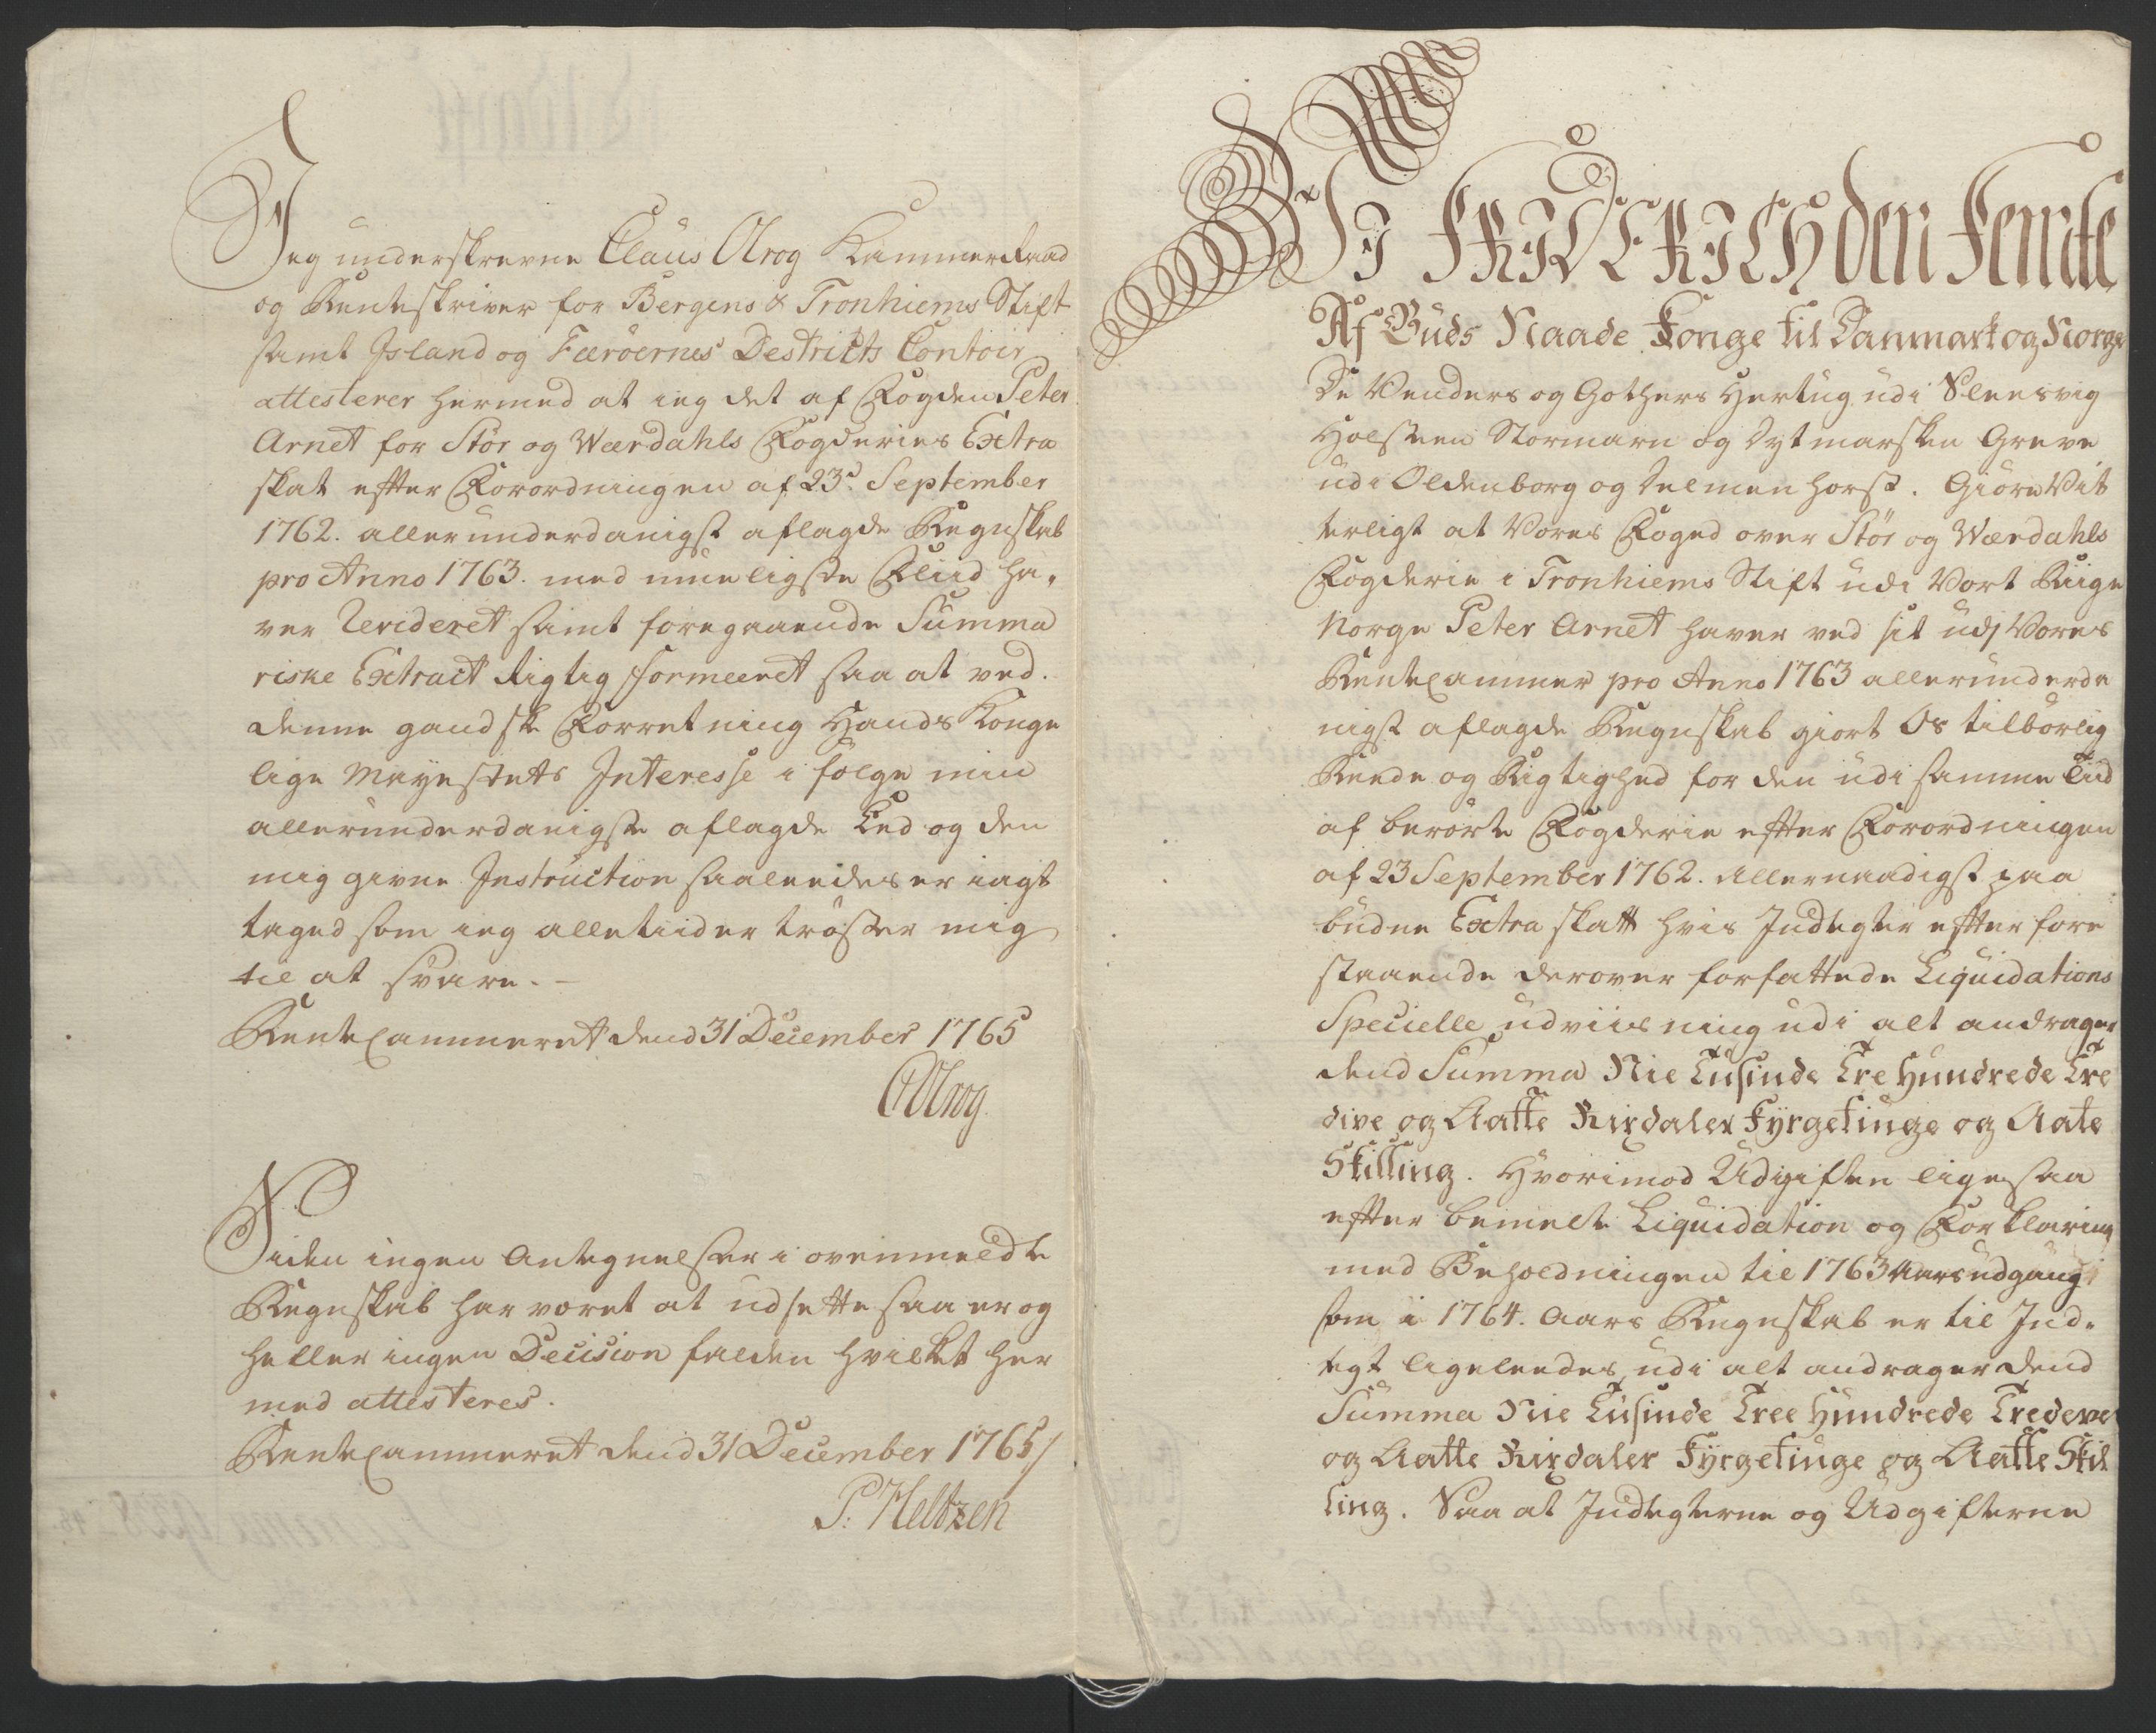 Jeg underskrevne Claus Olrog Kammerraad
og Renteskriver for Bergens & Tronhiems Stift
samt Island og Færöernes Destricts Contoir
attesterer hermed at ieg det af Fogden Peter
Arnet for Stör og Werdahls Fogderies Extra
skat efter Forordningen af 23d. September
1762. allerunderdanigst aflagde Regnskab
pro Anno 1763. med mueligste Fliid ha-
ver Revideret samt foregaaende Summa
riske Extract Rigtig formeeret saa at ved
denne gandske Forretning Hands Konge
lige Mayestets Interesse i fölge min
allerunderdanigste aflagde Eed og den
mig givne Instruction saaleedes er iagt
taged som ieg alletiider tröster mig
til at svare. -
RenteCammeret dend 31 December 1765
COlrog
Siden ingen Antegnelser i ovenmeldte
Regnskab har voret at udsette saa er og
heller ingen Decision falden hvilket her
med attesteres.
RenteCammeret dend 31 December 1765/
P. Heltzen
Vi FRIDERICH den Femte
Af Guds Naade Konge til Danmark og Norge
De Venders og Gothers Hertug udi Sleesvig
Holsteen Stormarn og Dytmarsken Greve
udi Oldenborg og Delmenhorst. Giöre Vit
terligt at Vores Foged over Stör og Werdahls
Fogderie i Tronhiems Stift udi Vort Riige
Norge Peter Arnet haver ved sit udj Vores
RenteCammer pro Anno 1763 allerunderda
nigst aflagde Regnskab giort Os tilbörlig
Reede og Rigtighed for den udi samme Tiid
af berörte Fogderie efter Forordningen
af 23 September 1762. Allernaadigst paa
budne Extra skatt hvis Indtegter efter fore
staaende derover forfattede Liquidations
Specielle udviisning udi alt andrager
dend Summa Nie Tusinde Tre Hundrede Tre
dive og Aatte Rixdaler Fyrgetinge og Aate
Skilling. Hvorimod Udgiften ligesaa
efter bemelte Liquidation og Forklaring
med Beholdningen til 1763 Aars udgang
som i 1764. Aars Regnskab er til Ind-
tegt ligeleedes udi alt andrager dend
Summa Nie Tusinde Tree Hundrede Tredeve
og Aatte Rixdaler Fyrgetinge og Aatte Skil
ling. Saa at Indtegterne og Udgifterne